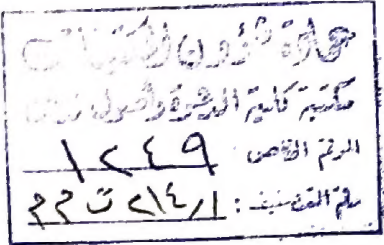 عمادة شؤون المكتبات
مكتبة كلية الدعوة وأصول الدين
الرقم الخاص: ١٢٤٩
رقم التصنيف: ٢١٤٫١ ت ٢٢